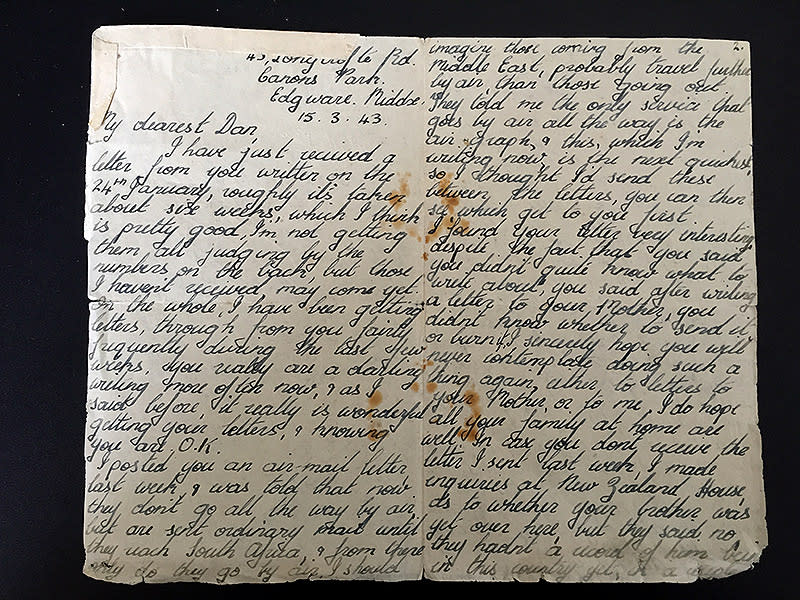 43, Longcrofte Rd.
Canons Park.
Edgware. Middx.
15. 3. 43.
My dearest Dan,
I have just received a
letter from you written on the
24th January, roughly it's taken
about six weeks, which I think
is pretty good, I'm not getting
them all judging by the
numbers on the back but those
I haven't received may come yet.
On the whole, I have been getting
letters, through from you fairly
frequently during the last few
weeks, you really are a darling
writing more often now, & as I
said before, it really is wonderful
getting your letters, & knowing
you are, O.K.
I posted you an air-mail letter
last week, & was told that now
they don't go all the way by air,
but are sent ordinary mail until
they reach South Africa, & from there
only do they go by air, I should
2.
imagine those coming from the
middle East, probably travel further
by air, than those going out.
They told me the only service that
goes by air all the way is the
air-graph, & this, which I'm
writing now, is the next quickest,
so I thought I'd send these
between the letters, you can then
see which get to you first.
I found your letter very interesting
despite the fact that you said
you didn't quite know what to
write about, you said after writing
a letter to your Mother, you
didn't know whether to send it
or burn it, I sincerely hope you will
never contemplate doing such a
thing again, either to letters to
your Mother, or to me, I do hope
all your family at home are
well. In case you don't receive the
letter I sent last week, I made
enquiries at New Zealand House,
as to whether your brother was
yet over here, but they said no
they hadn't a word of him being
in this country yet, in a couple